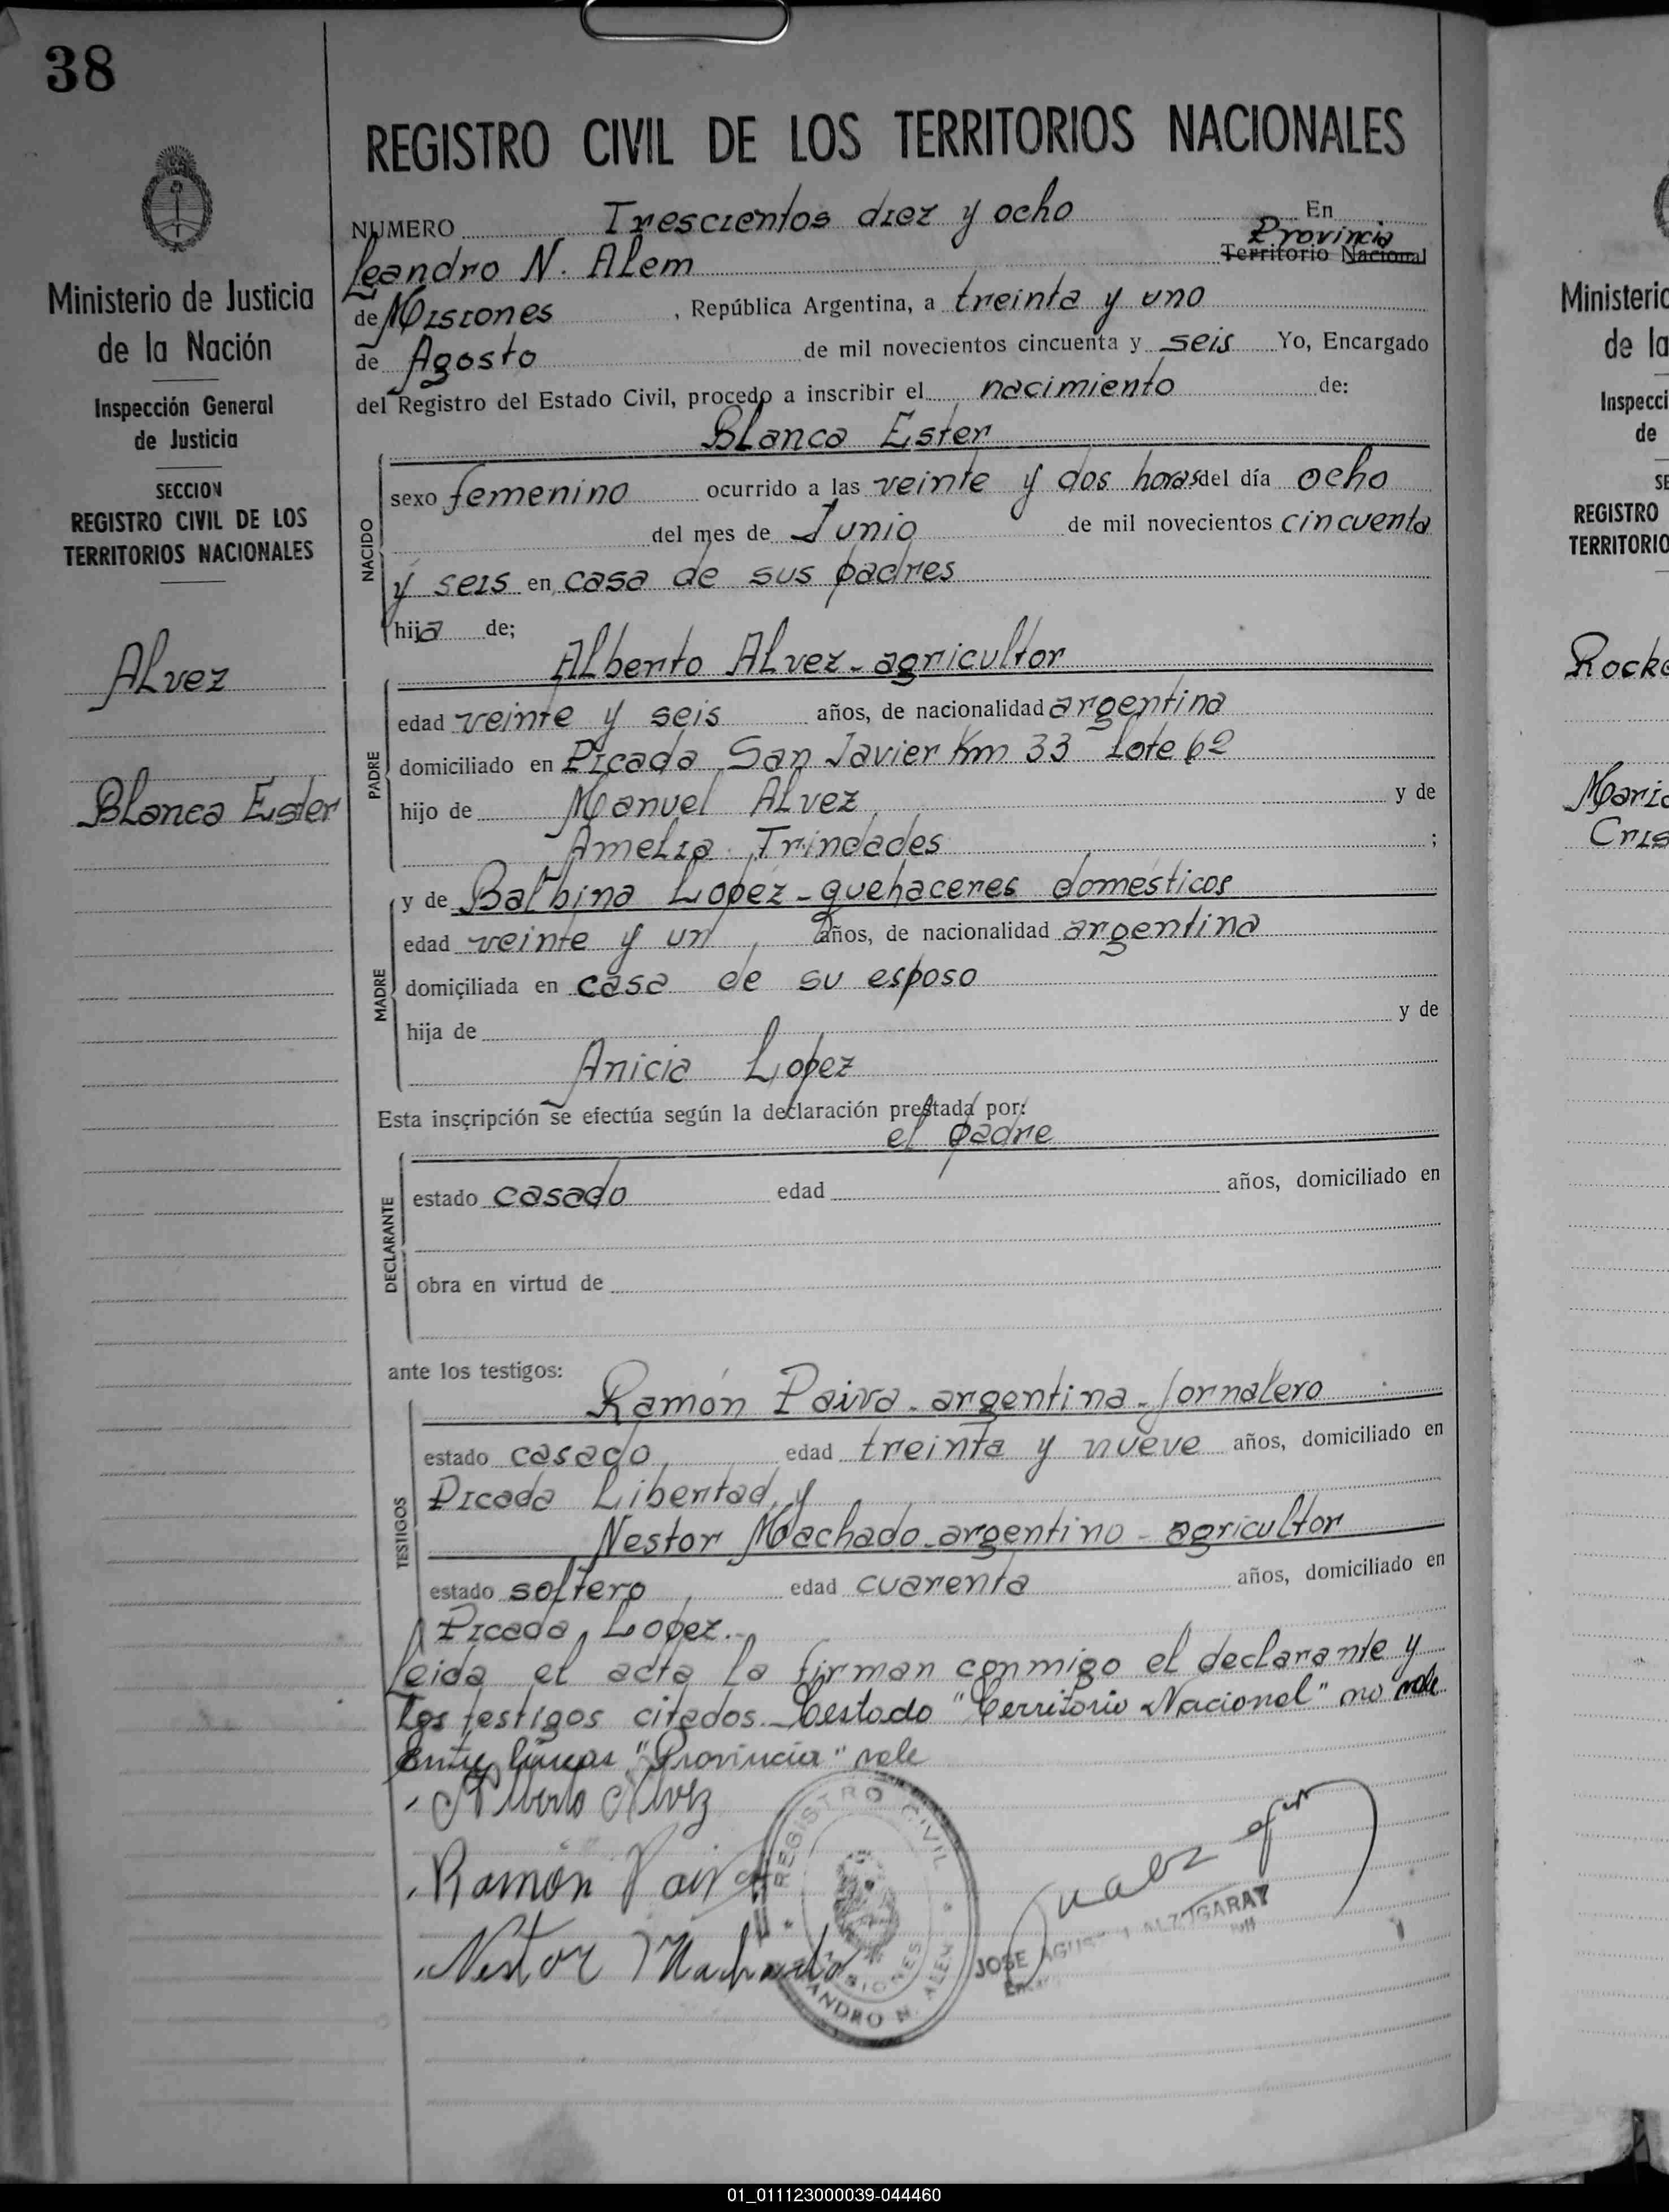 38
Ministerio de Justicia
de la Nación
Inspección General
de Justicia
SECCION
REGISTRO CIVIL DE LOS
TERRITORIOS NACIONALES
Alvez
Blanca Ester
REGISTRO CIVIL DE LOS TERRITORIOS NACIONALES
NUMERO Trescientos diez y ocho En
Provincia
Leandro N. Alem Territorio Nacional
de Misiones, República Argentina, a treinta y uno
de Agosto de mil novecientos cincuenta y seis Yo, Encargado
del Registro del Estado Civil, procedo a inscribir el nacimiento de:
Blanca Ester
NACIDO
sexo femenino ocurrido a las veinte y dos horas del día ocho
del mes de Junio de mil novecientos cincuenta
y seis en casa de sus padres
hija de;
Alberto Alvez - agricultor
PADRE
edad veinte y seis años, de nacionalidad argentina
domiciliado en Picada San Javier Km 33 Lote 62
hijo de Manuel Alvez y de
Amelia Trindades ;
y de Balbina Lopez - quehaceres domésticos
MADRE
edad veinte y un años, de nacionalidad argentina
domiciliada en casa de su esposo
hija de y de
Anicia Lopez
Esta inscripción se efectúa según la declaración prestada por:
el padre
DECLARANTE
estado casado edad años, domiciliado en
obra en virtud de
ante los testigos:
Ramón Paiva - argentina - jornalero
TESTIGOS
estado casado, edad treinta y nueve años, domiciliado en
Picada Libertad, y
Nestor Machado - argentino - agricultor
estado soltero, edad cuarenta años, domiciliado en
Picada Lopez.
Leida el acta la firman conmigo el declarante y
los testigos citados. Testado "Territorio Nacional" no vale
Entre líneas "Provincia" vale
Alberto Alvez
Ramón Paiva
Nestor Machado
REGISTRO CIVIL
MISIONES
LEANDRO N. ALEM
JOSE AGUSTIN ALZUGARAY
Ministerio
de la
Inspecci
de
SE
REGISTRO
TERRITORIO
Rocke
Maria
Cris
01_011123000039-044460